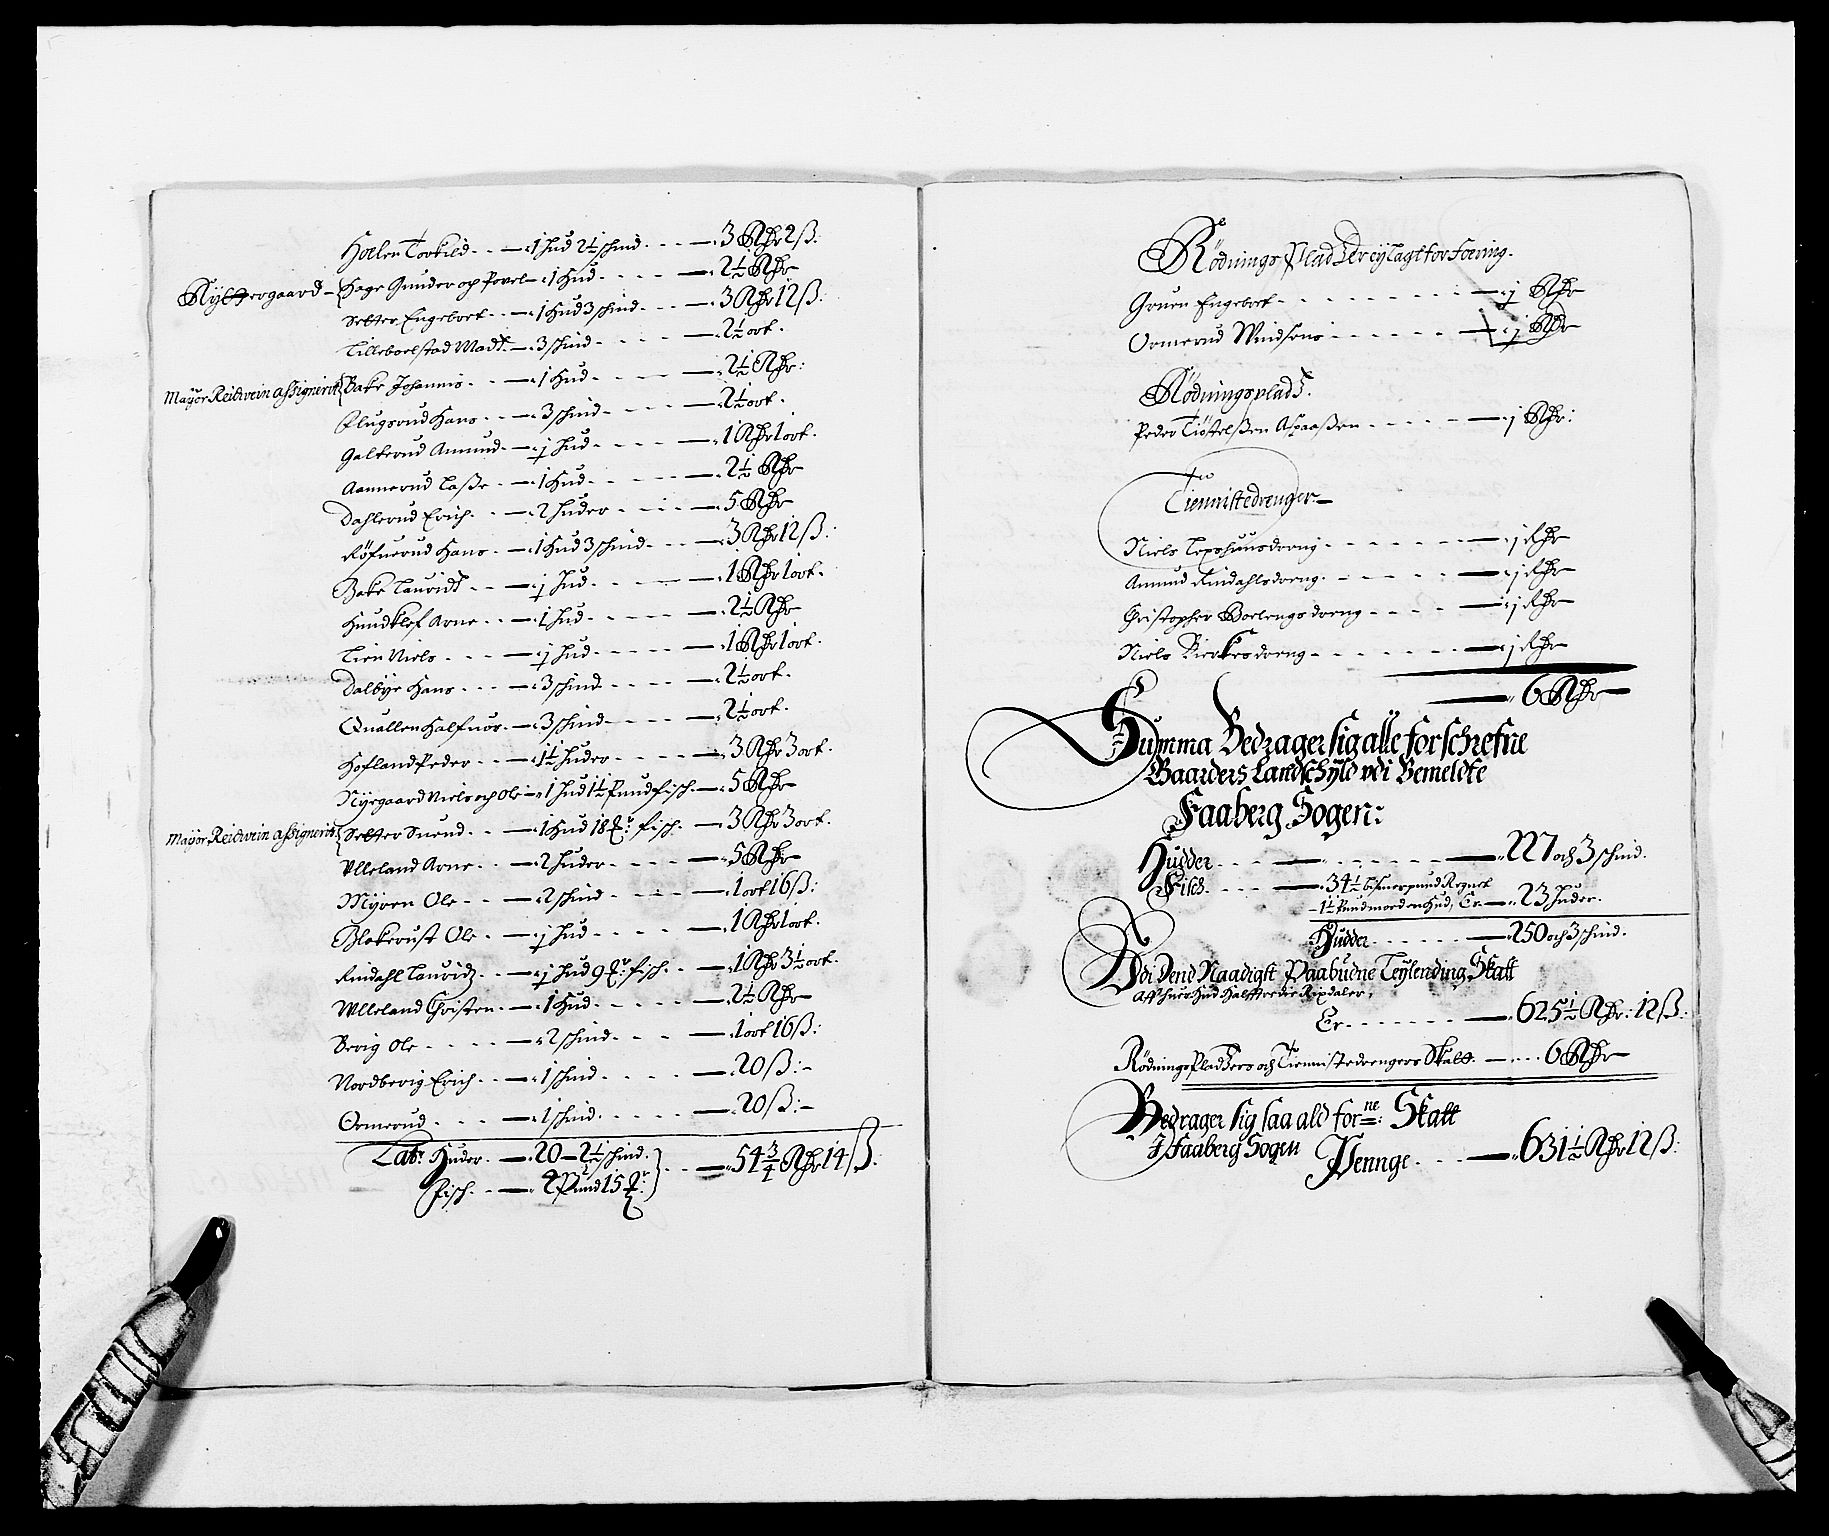 Hoelen Torkild - - 1 Hud 2½ schind - - - 3 Rdr 2 ß:
Rytzergaard - Hage Gunder og Povel - 1 Hud - - - - 2½ Rdr
Selter Engebret - - 1 Hud 3 schind - - - 3 Rdr 12 ß:
Lilleboelstad Madtz - 3 schind - - - - 2½ ort.
Mayor Reichwein assignerit Bake Johannis - - 1 Hud - - - - 2½ Rdr:
Flugsrud Hans - - 3 schind - - - - 2½ ort.
Galterud Amund - j Hud - - - - 1 Rdr 1 ort.
Aannerud Laße - - 1 Hud - - - - 2½ Rdr
Dahlerud Erich - - 2 Huder - - - 5 Rdr
Röfnerud Hans - - 1 Hud 3 schind - - - 3 Rdr 12 ß:
Bake Lauridtz - - j Hud - - - - 1 Rdr 1 ort.
Hundklef Arne - - 1 Hud - - - - 2½ Rdr
Lien Niels - - - j Hud - - - - 1 Rdr 1 ort.
Dalbye Hans - - - 3 schind - - - - 2½ ort.
Quallen Halfuor - 3 schind - - - - 2½ ort.
Hofland Peder - - 1½ Huder - - - - 3 Rdr 3 ort.
Nyegaard Niels och Ole - 1 Hud 1½ Pund fisch - 5 Rdr
Mayor Reichwein assignerit Selter Suend - - 1 Hud 18 fisch - 3 Rdr 3 ort.
Ulleland Arne - - 2 Huder - - - - 5 Rdr
Myren Ole - - - 2 schind - - - - 1 ort 16 ß:
Blakerust Ole - - j Hud - - - - 1 Rdr 1 ort.
Rindahl Lauridtz - - j Hud 9 fisch - - 1 Rdr 3½ ort.
Ulleland Christen - 1 Hud - - - - 2½ Rdr
Berig Ole - - - - 2 schind - - - 1 ort 16 ß:
Nordberig Erich - - 1 schind - - - - 20 ß:
Ormerud - - - - 1 schind - - - - 20 ß:
Lat: Huder - - 20 - 2½ schind. - - 54¾ Rdr 14 ß.
Fisch - - 2 Pund 15
Rödnings Pladtzer eylagt for Foering.
Gruen Engebret - - - - - - - - j Rdr
Ormerud - - - - - - j Rdr
Rödningspladtz.
Peder Aspaaßen - - - - j Rdr:
Tienniste drenger
Niels dreng - - - - - - j Rdr
Amund Rindahls dreng - - - - - - j Rdr
Christopher Boelengs dreng - - - - j Rdr
Niels dreng - - - - - - j Rdr
6 Rdr
Summa Bedrager sig alle forschrefne
Gaarders Landschyld udi Bemeldte
Faaberg Sogen:
Hudder - - - - - - - - 227 och 3 schind.
Fisch - - - - 34½ bismerpund Regnet
1½ Pund mod en Hud, Er - 23 Huder.
Hudder - - - - - - 250 och 3 schind.
Udi Dend Naadigst Paabudne Leylending Skatt
Aff huer Hud Halfftredie Rixdaler,
Er - - - - - - 625½ Rdr: 12 ß:
Rödnings Pladtzers och Tiennistedrengers Skatt - - - 6 Rdr
Bedrager sig saa ald forne: Skatt
I Faaberg Sogen Pennge - - - 631½ Rdr 12 ß: